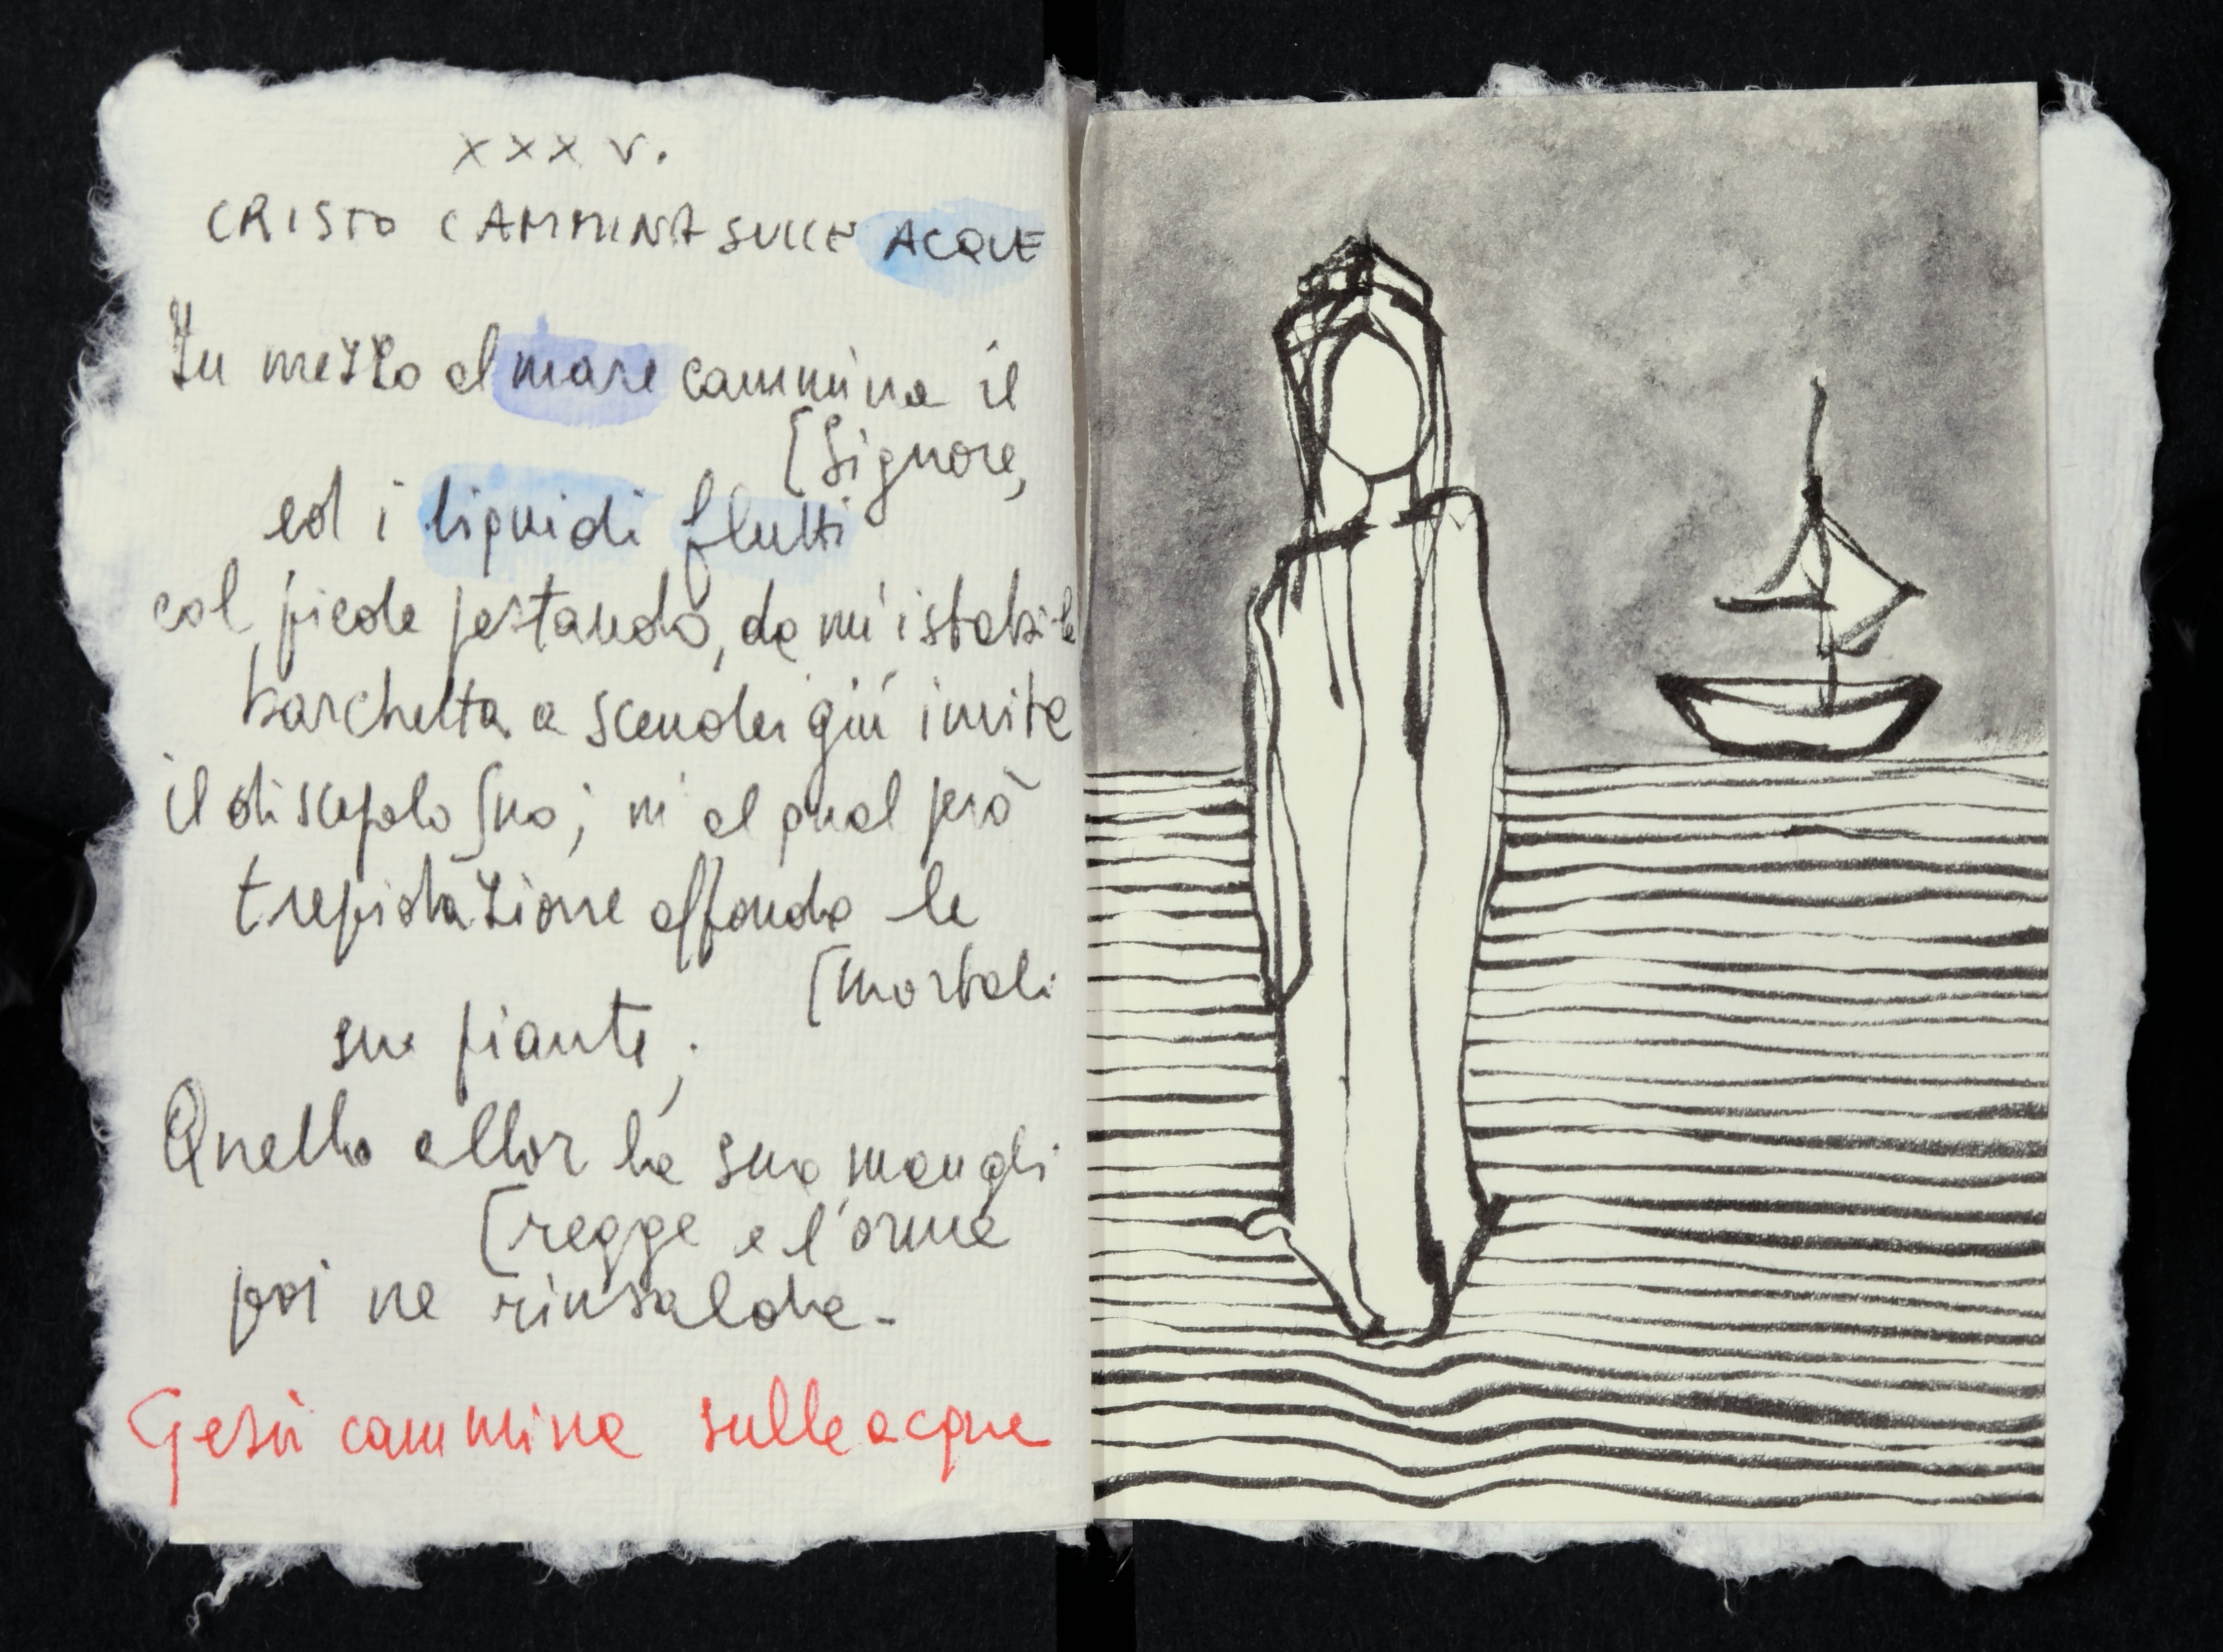 XXXV.
CRISTO CAMMINA SULLE ACQUE
In mezzo al mare cammina il
[Signore,
ed i liquidi flutti
col piede pestando, da un'istabil
barchetta a scender giù invita
il discepolo suo; a qual però
trepidazione affonda le
[mortali
sue piante;
Quello allor la sua man gli
[regge e l'orme
poi ne rinsalda.
Gesù cammina sulle acque